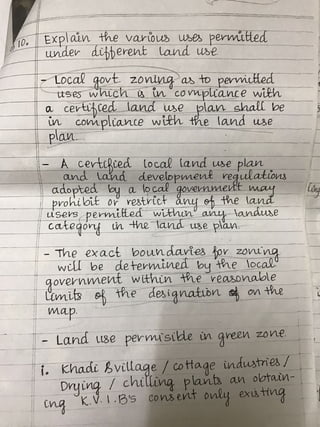 10. Explain the various uses permitted
under different land use
- Local govt zoning as to permitted
uses which is in compliance with
a certified land use plan shall be
in compliance with the land use
plan.
- A certified local land use plan
and land development regulations
adopted by a local government may
prohibit or restrict any of the land
users permitted within any landuse
category in the land use plan.
- The exact boundaries for zoning
will be determined by the local
government within the reasonable
limits of the designation on the
map.
- Land use permisible in green zone.
i. Khadi & village / cottage industries /
Drying / chilling plants an obtain-
ing K.V.I.B's consent only existing